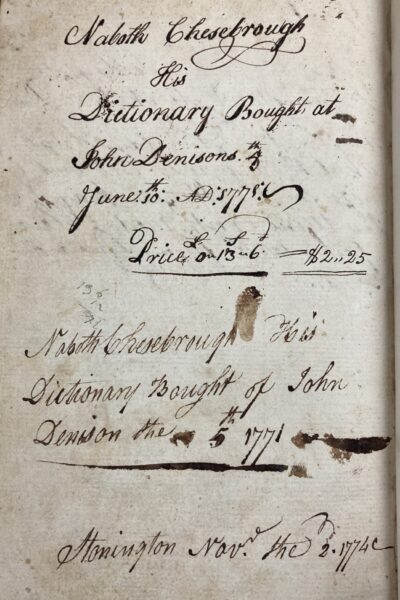 Naboth Chesebrough
His
Dictionary Bought at
John Denisons. 4th
June. 10th. AD. 1775.
Price £0 " 13 " 6d = $2 " 25
Naboth Chesebrough His
Dictionary Bought of John
Denison the 5th 1771
Stonington Novr. the 2d. 1774